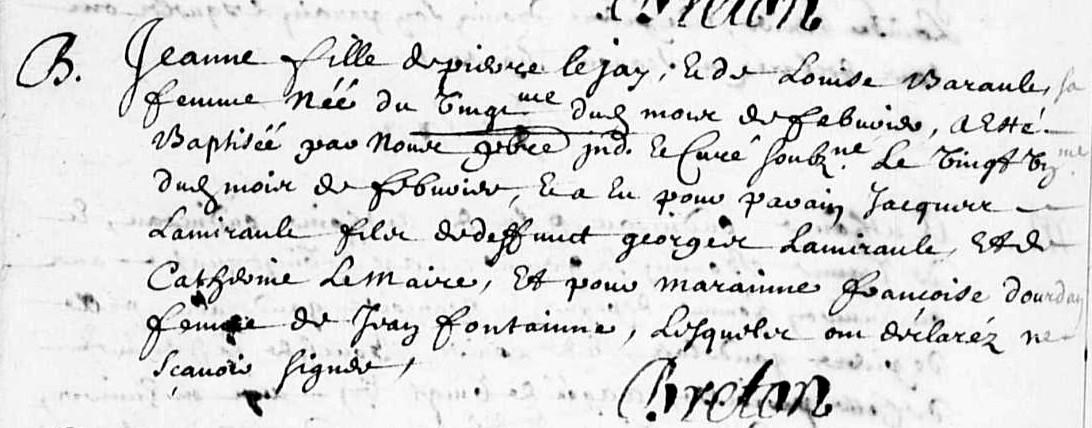 Breton
B. Jeanne fille de pierre lejay, & de Louise Barault, sa
femme Néé du Vingt me dud. mois de febvrier, a Esté
Baptiséé par Nous pbre ind. & Curé soubz. ne Le Vingt
dud. mois de febvrier, & a Eu pour parain Jacques
Lamirault fils de deffunct georges Lamirault, Et de
Catherine Le Maire, Et pour marainne francoise dourdan
femme de Jean fontainne, Lesquels ont déclaréz ne
sçavoir signer,
Breton